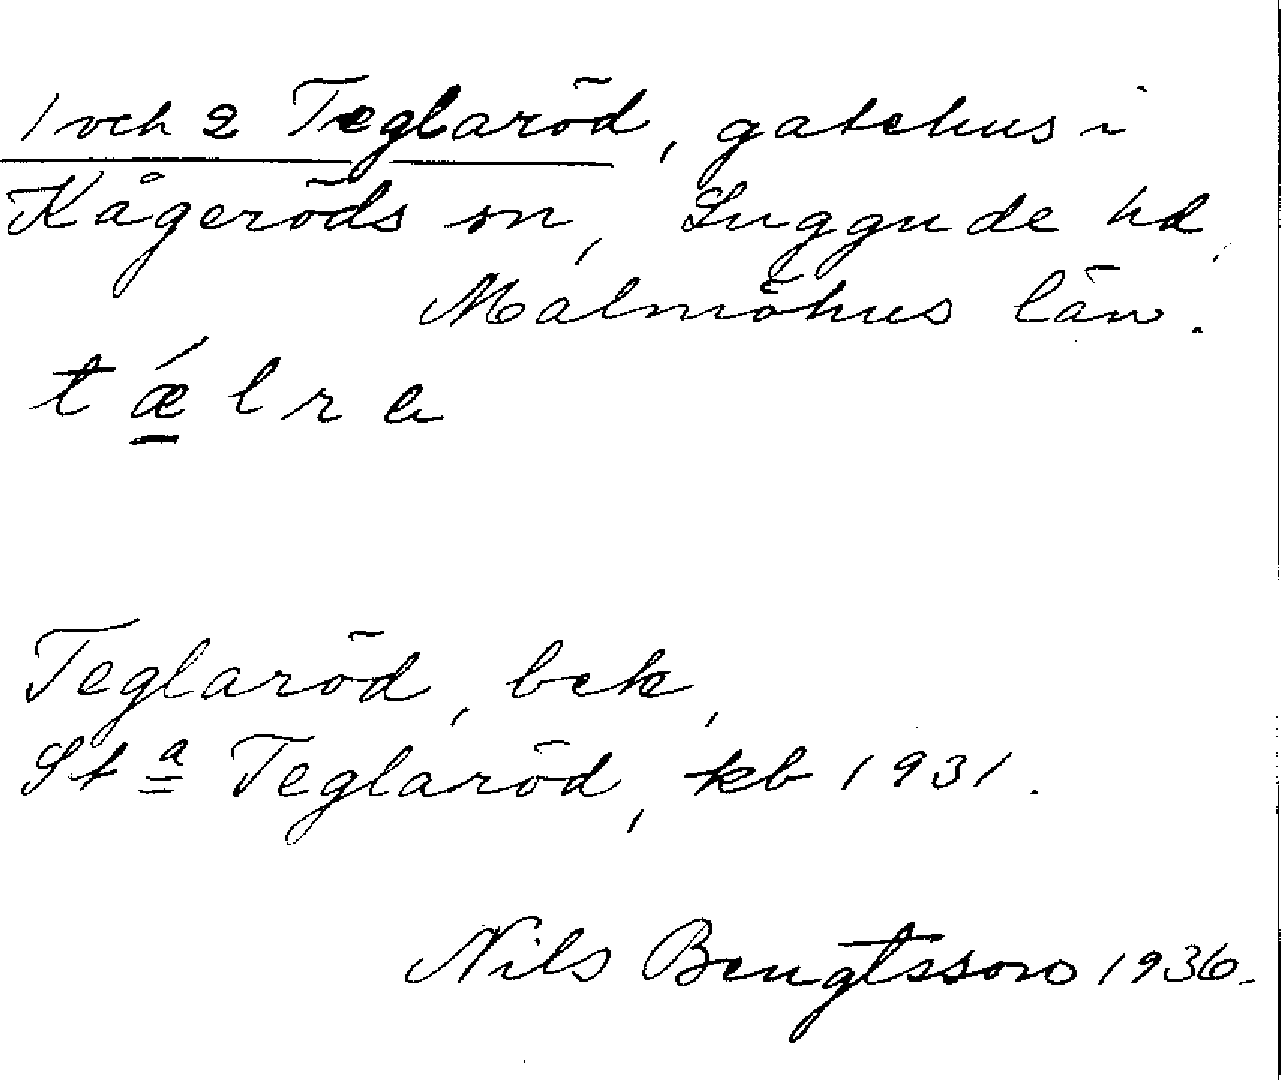 1 och 2 Teglaröd, gatehus i
Kågeröds sn, Luggude hd,
Malmöhus län.
tǽlra
Teglaröd, bek,
St a Teglaröd, kb 1931.
Nils Bengtsson 1936.